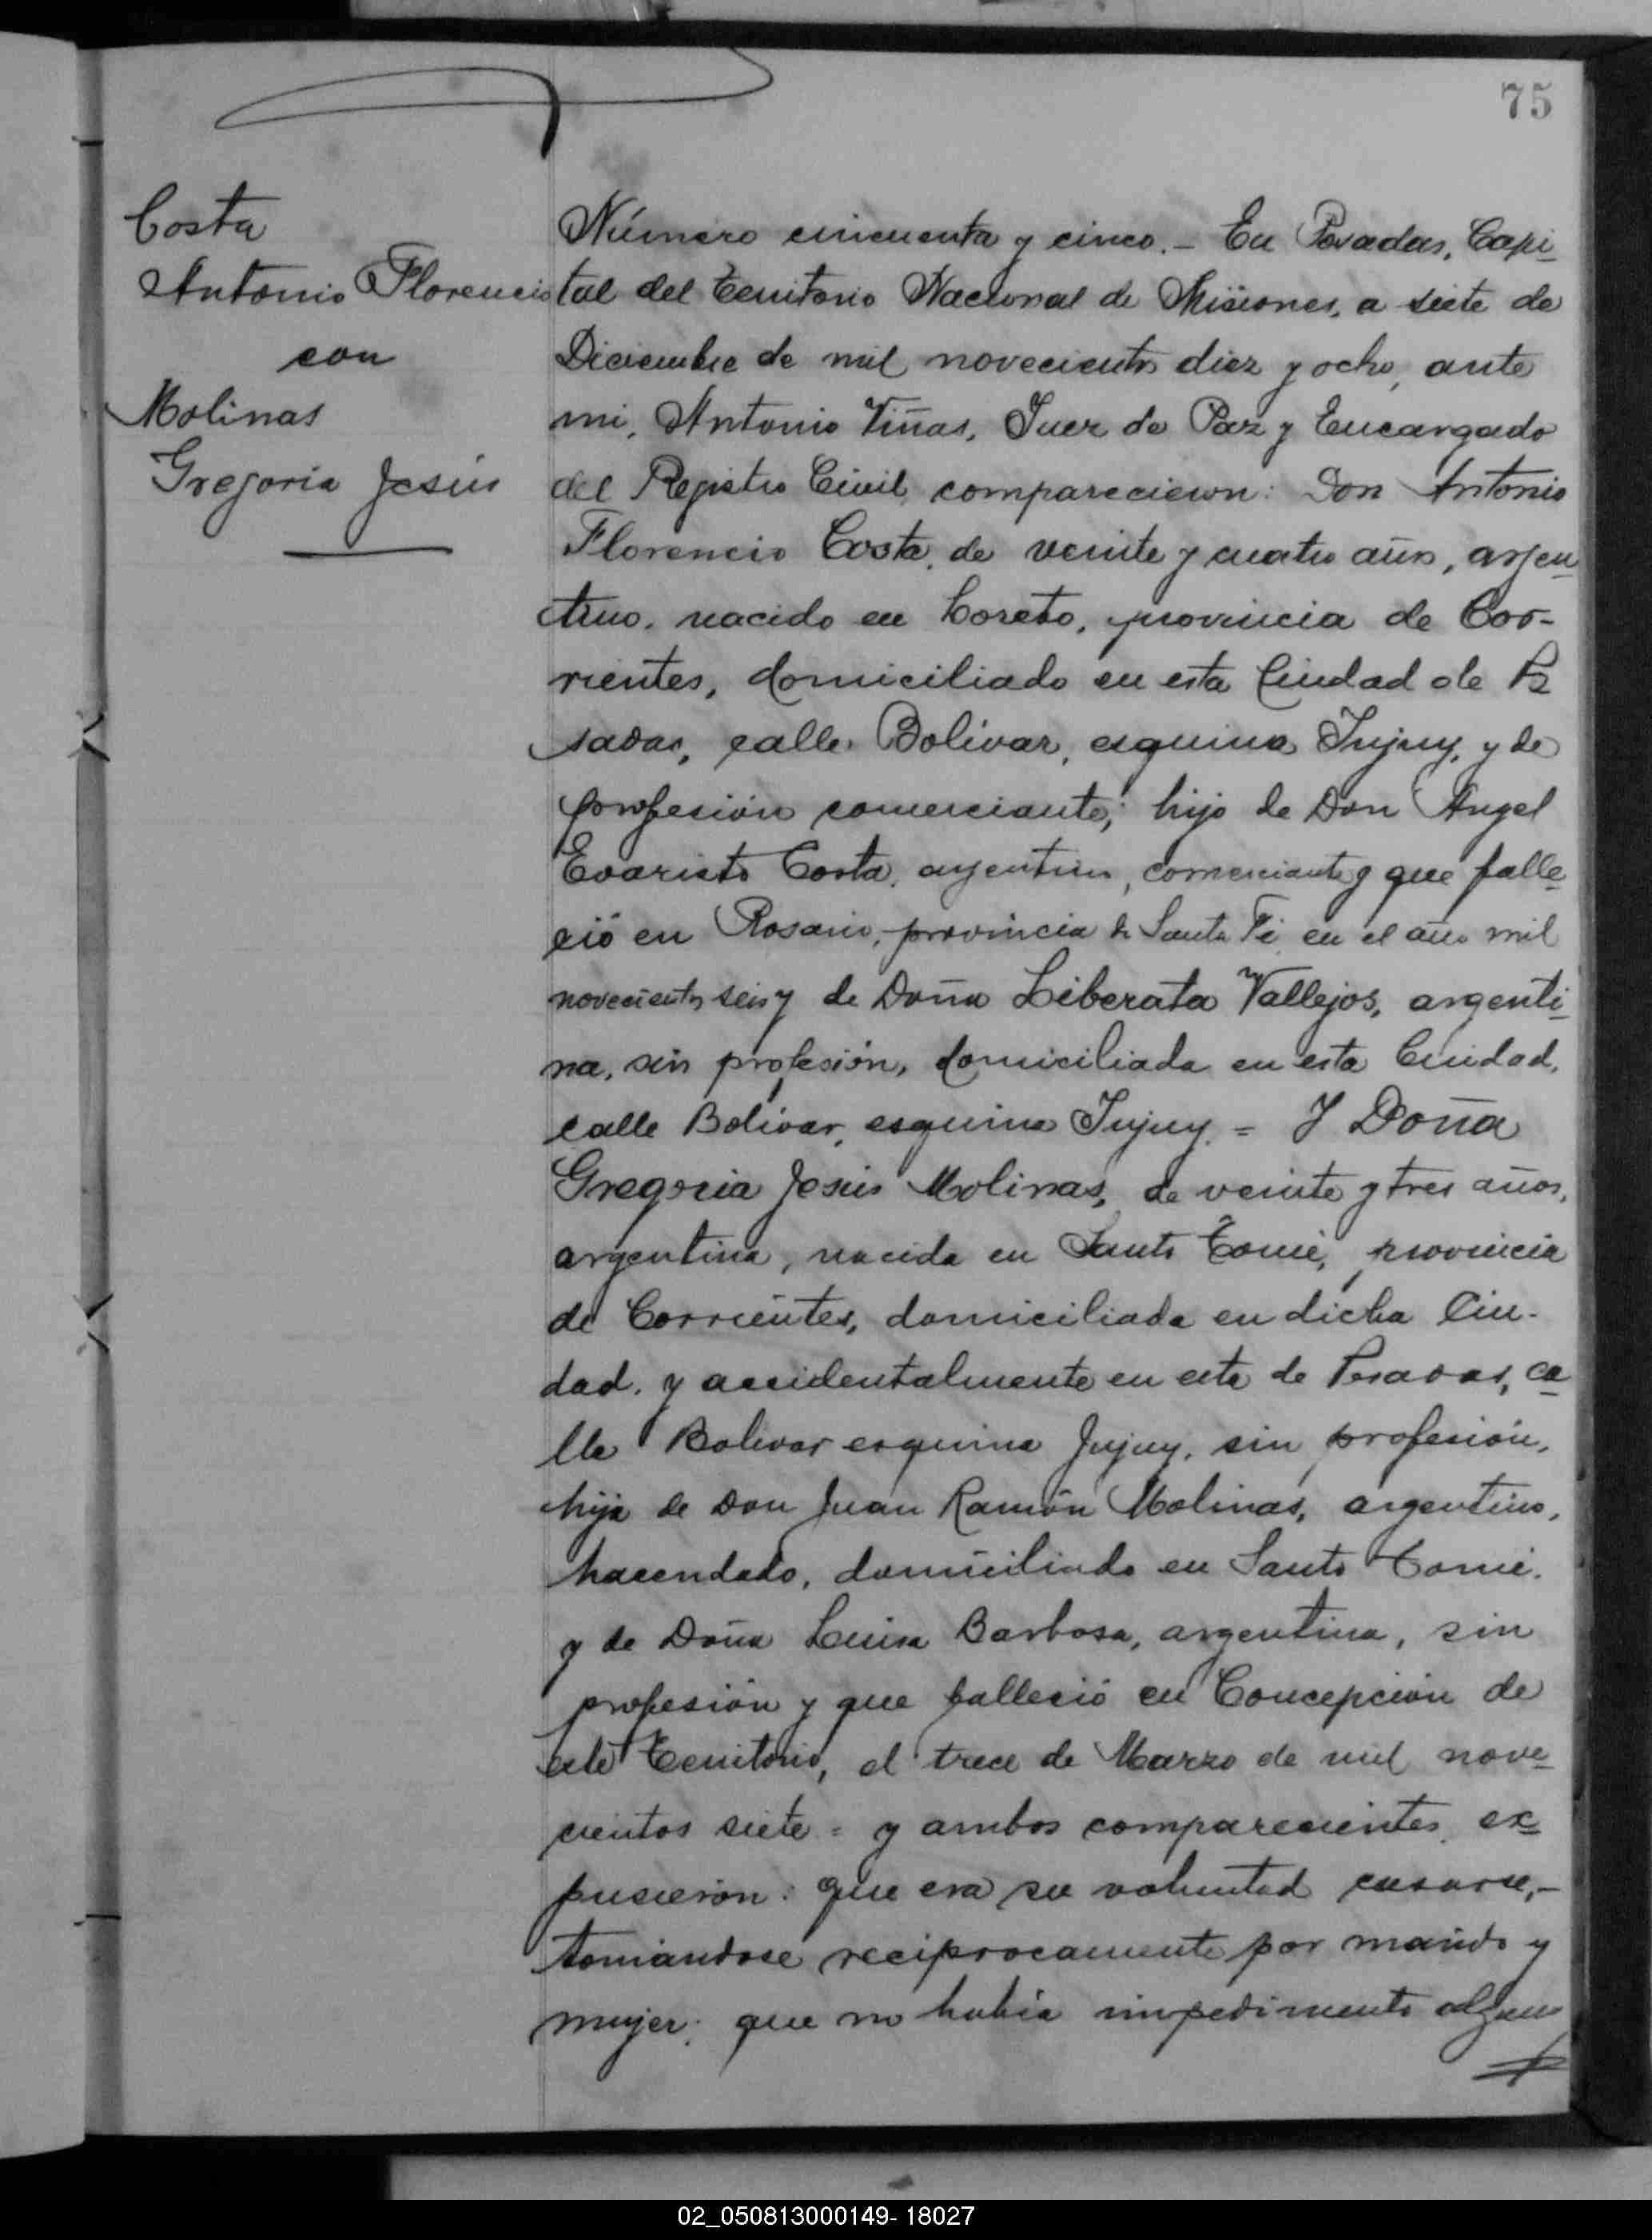 75
Costa
Antonio Florencio
con
Molinas
Gregoria Jesús
Número cincuenta y cinco.- En Posadas, Capi-
tal del Territorio Nacional de Misiones, a siete de
Diciembre de mil novecientos diez y ocho, ante
mi, Antonio Viñas, Juez de Paz y Encargado
del Registro Civil, comparecieron: Don Antonio
Florencio Costa, de veinte y cuatro años, arjen-
tino, nacido en Loreto, provincia de Cor-
rientes, domiciliado en esta Ciudad de Po
sadas, calle Bolívar, esquina Jujuy, y de
profesión comerciante; hijo de Don Angel
Evaristo Costa, arjentino, comerciante y que falle-
ció en Rosario, provincia de Santa Fé en el año mil
novecientos seis y de Doña Liberata Vallejos, argenti-
na, sin profesión, domiciliada en esta Ciudad,
calle Bolívar, esquina Jujuy. = Y Doña
Gregoria Jesús Molinas, de veinte y tres años,
argentina, nacida en Santo Tomé, provincia
de Corrientes, domiciliada en dicha Ciu-
dad. y accidentalmente en esta de Posadas, ca-
lle Bolívar esquina Jujuy, sin profesión,
hija de Don Juan Ramón Molinas, argentino,
hacendado, domiciliado en Santo Tomé.
y de Doña Luisa Barbosa, argentina, sin
profesión y que falleció en Concepción de
este Territorio, el trece de Marzo de mil nove-
cientos siete = y ambos comparecientes ex-
pusieron: que era su voluntad casarse,-
tomándose recíprocamente por marido y
mujer; que no había impedimento alguno
02_050813000149- 18027